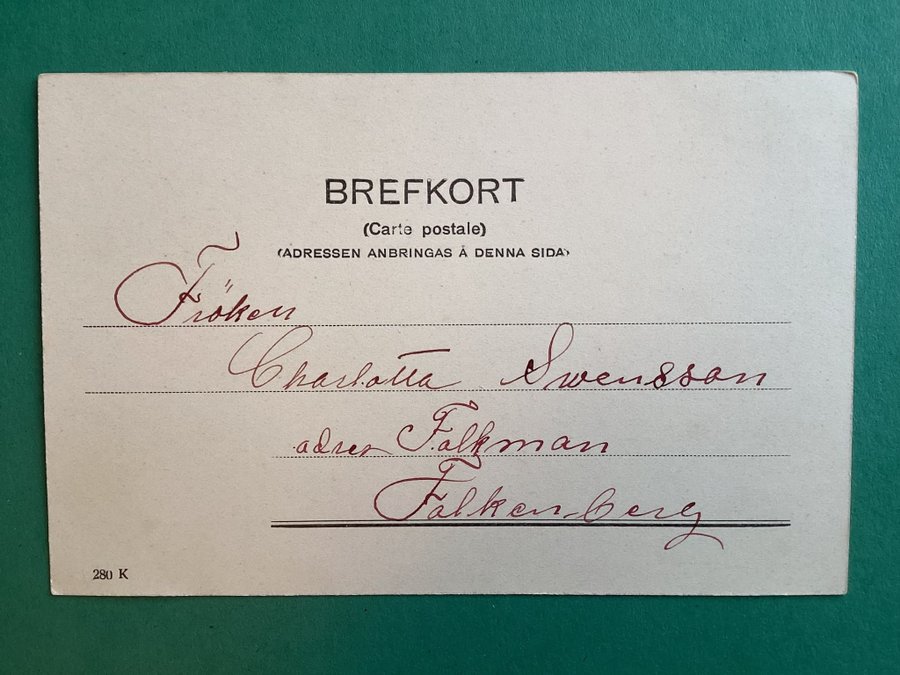 BREFKORT
(Carte postale)
(ADRESSEN ANBRINGAS Å DENNA SIDA)
Fröken
Charlotta Swensson
adres Falkman
Falkenberg
280 K